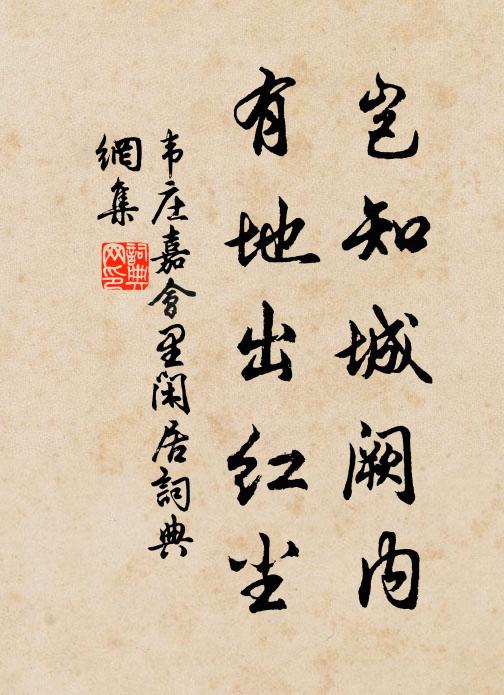 岂知城阙内
有地出红尘
韦庄嘉会里闲居词典
网集
词典网印